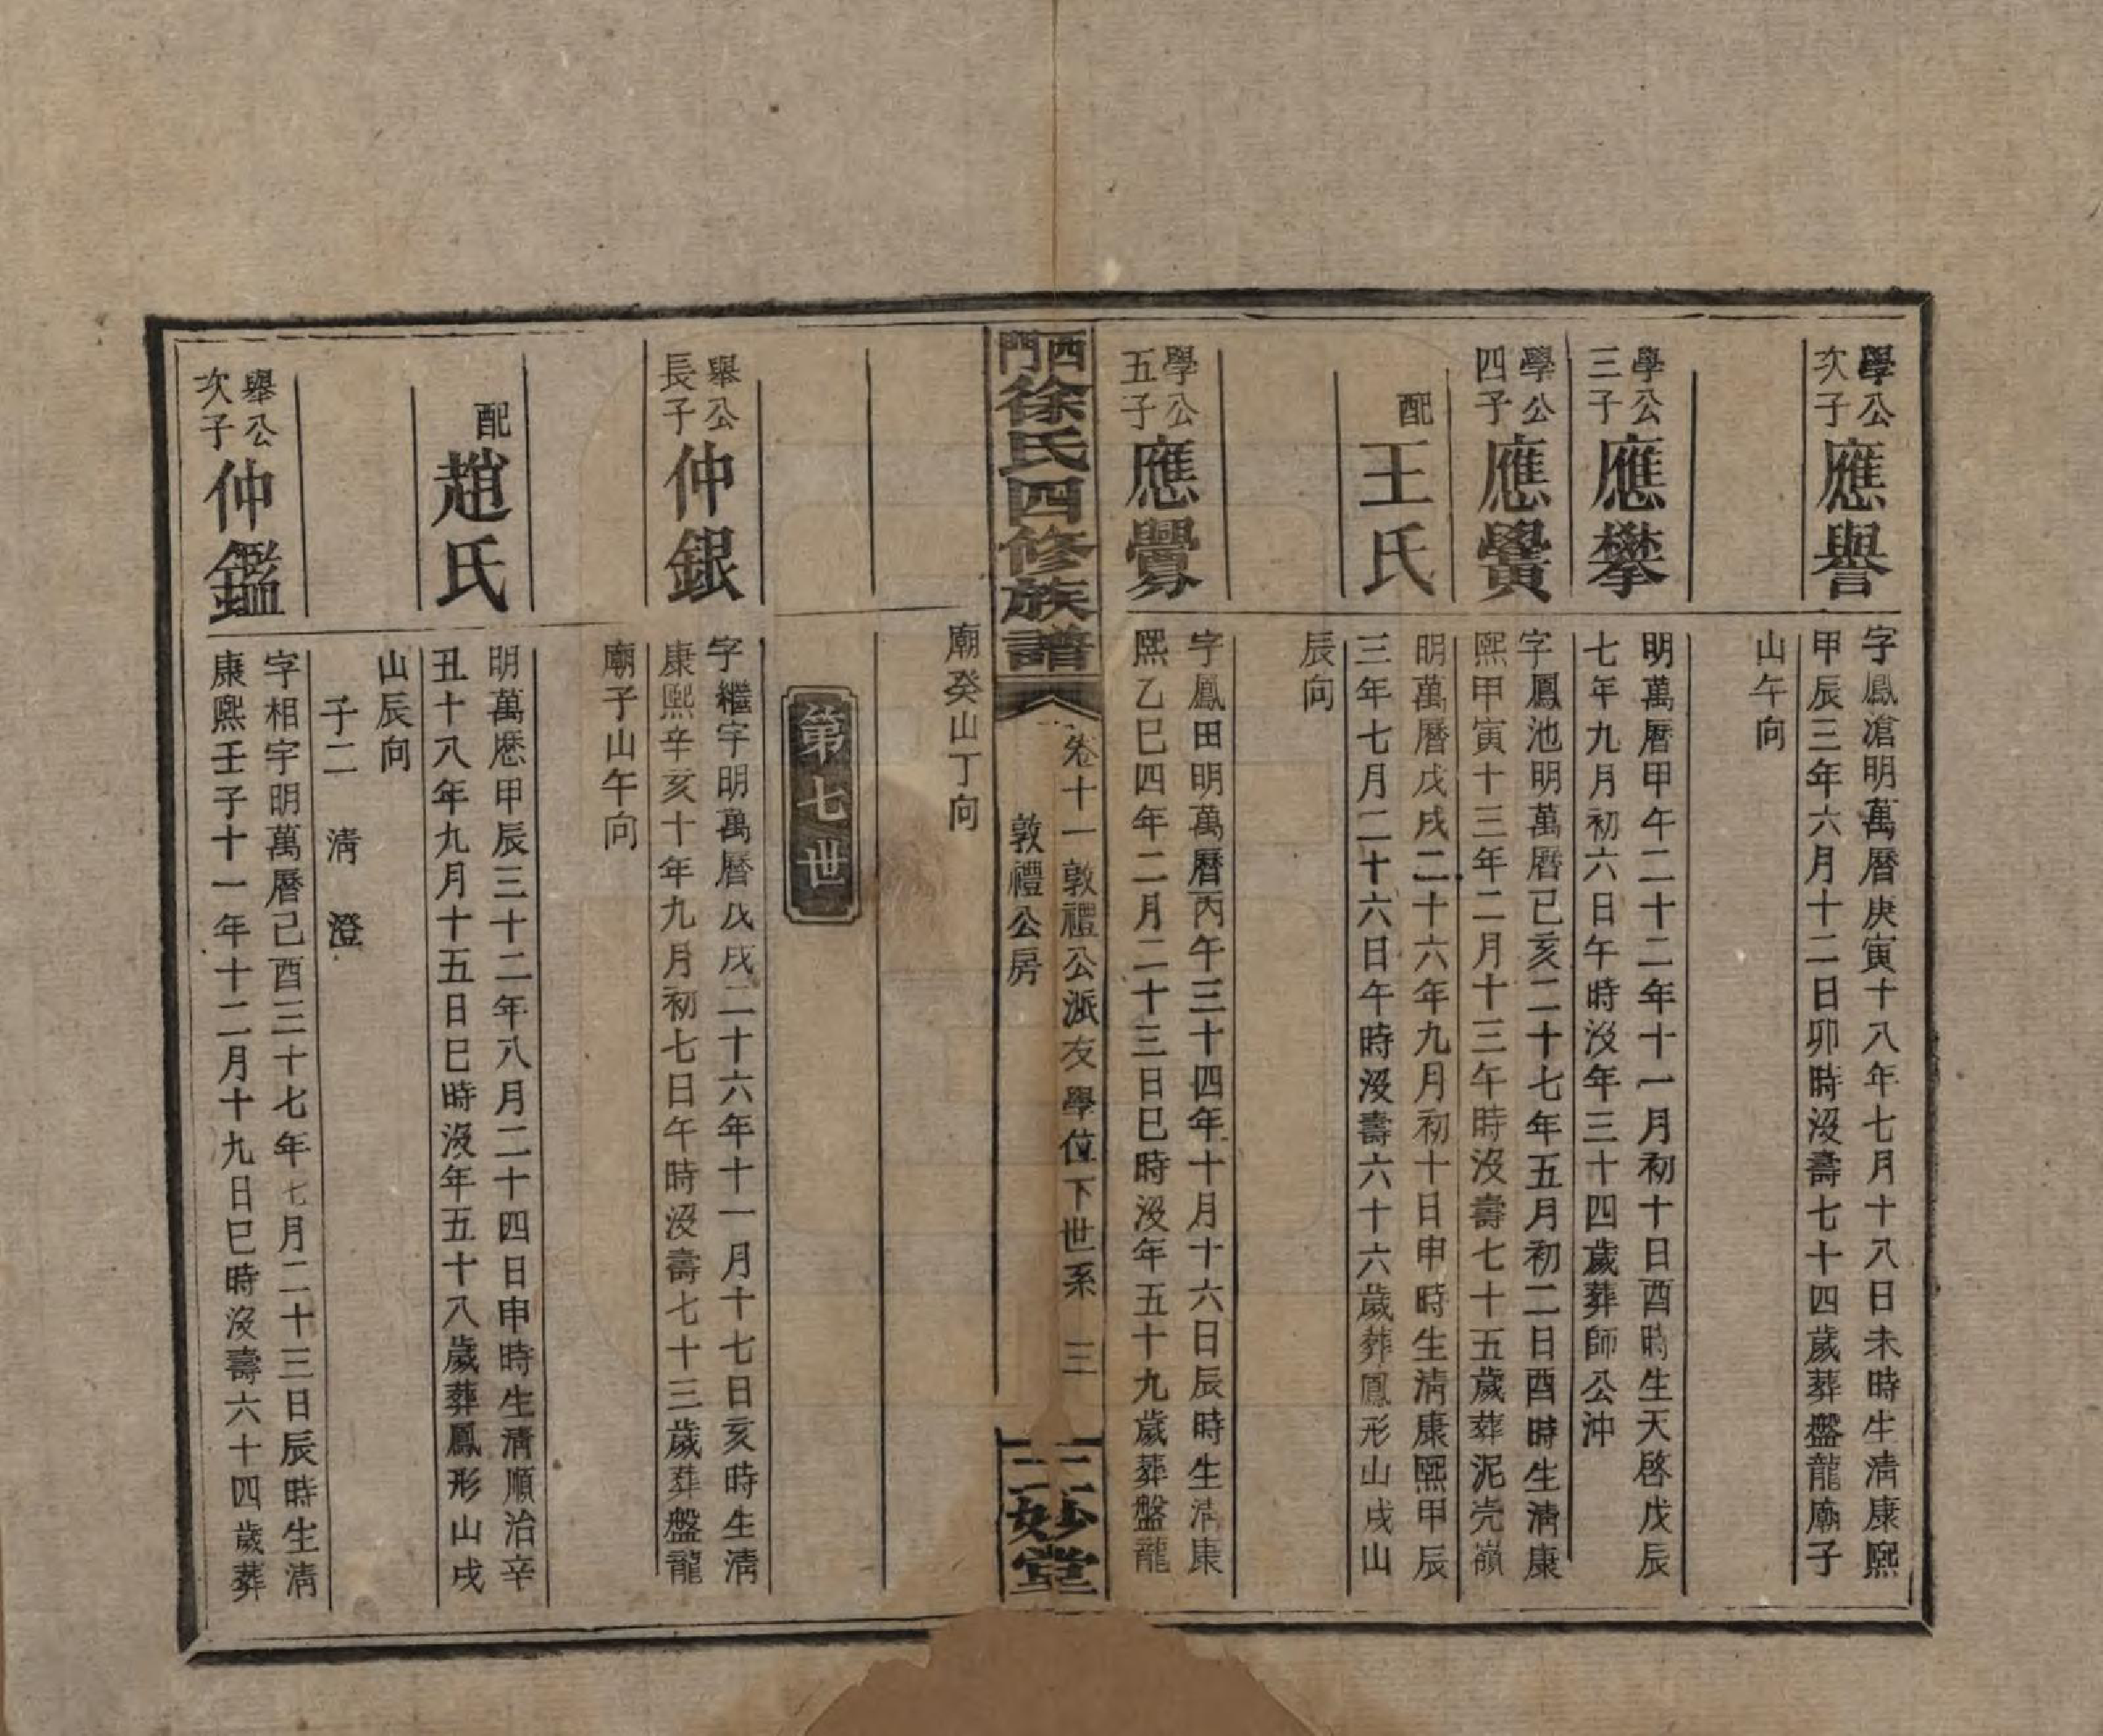 學公
次子
應譽
字鳳滄明萬曆庚寅十八年七月十八日未時生清康熙
甲辰三年六月十二日卯時沒壽七十四歲葬盤龍廟子
山午向
學公
三子
應攀
明萬曆甲午二十二年十一月初十日酉時生天啓戊辰
七年九月初六日午時沒年三十四歲葬師公沖
學公
四子
應黌
字鳳池明萬曆已亥二十七年五月初二日酉時生清康
熙甲寅十三年二月十三午時沒壽七十五歲葬泥壳嶺
配
王氏
明萬曆戊戌二十六年九月初十日申時生清康熙甲辰
三年七月二十六日午時沒壽六十六歲葬鳳形山戌山
辰向
學公
五子
應
字鳳田明萬曆丙午三十四年十月十六日辰時生清康
熙乙巳四年二月二十三日巳時沒年五十九歲葬盤龍
西門徐氏四修族譜
卷十一敦禮公派友學位下世系 三
敦禮公房
妙堂
廟癸山丁向
第七世
舉公
長子
仲銀
字繼宇明萬曆戊戌二十六年十一月十七日亥時生清
康熙辛亥十年九月初七日午時沒壽七十三歲葬盤龍
廟子山午向
配
趙氏
明萬歷甲辰三十二年八月二十四日申時生清順治辛
丑十八年九月十五日巳時沒年五十八歲葬鳳形山戌
山辰向
子二 清 澄
舉公
次子
仲鑑
字相宇明萬曆己酉三十七年七月二十三日辰時生清
康熙壬子十一年十二月十九日巳時沒壽六十四歲葬